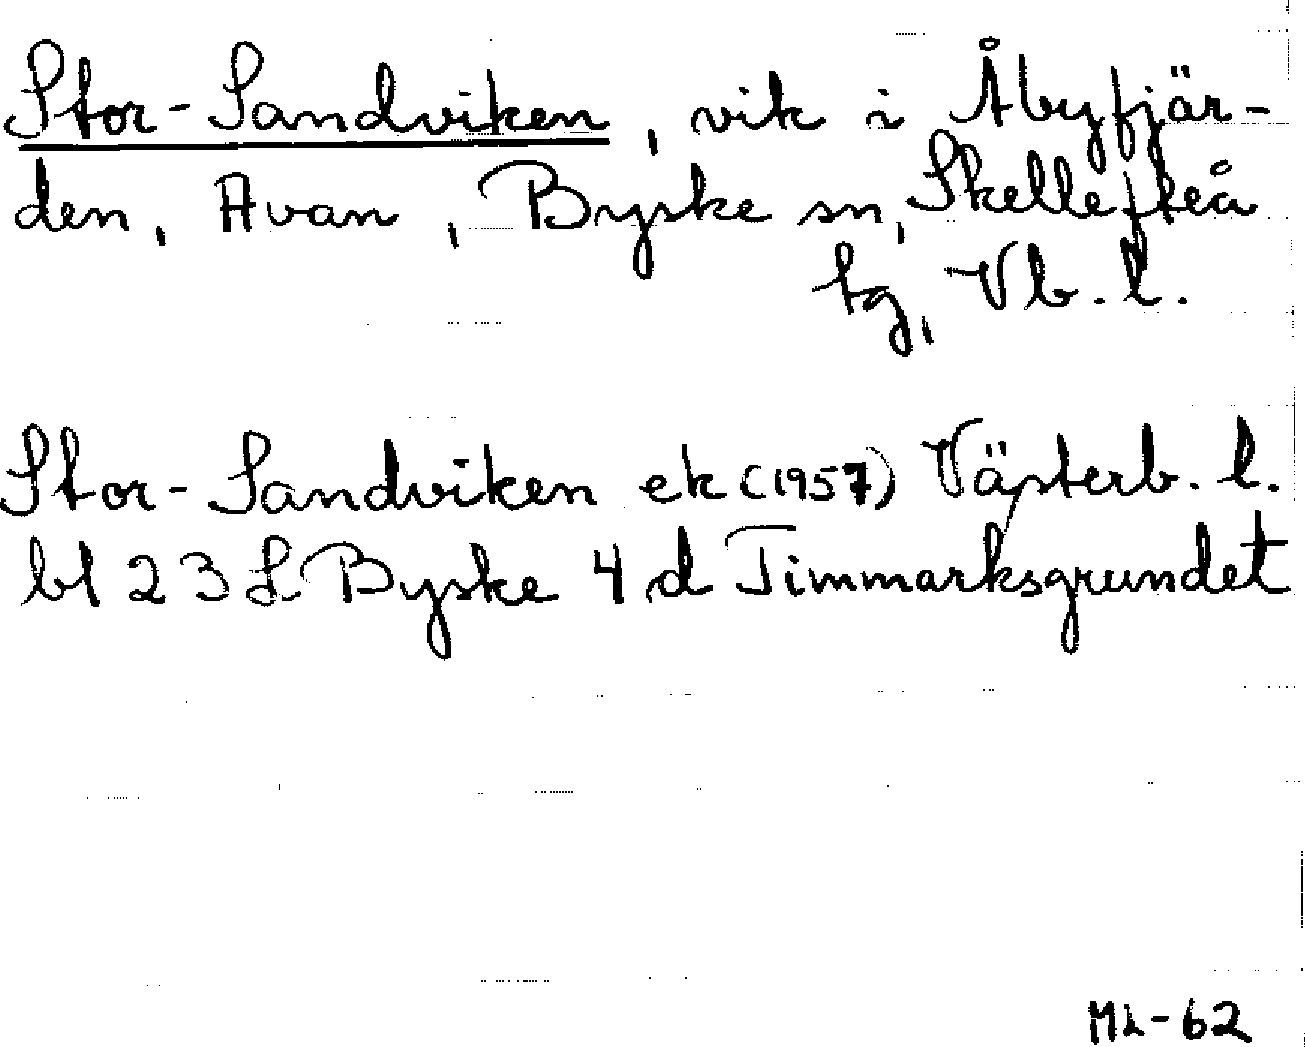 Stor-Sandviken, vik i Åbyfjär-
den, Avan, Byske sn, Skellefteå
tg, Vb. l.
Stor-Sandviken ek (1957) Västerb. l.
bl 23 L Byske 4 d Timmarksgrundet
-62